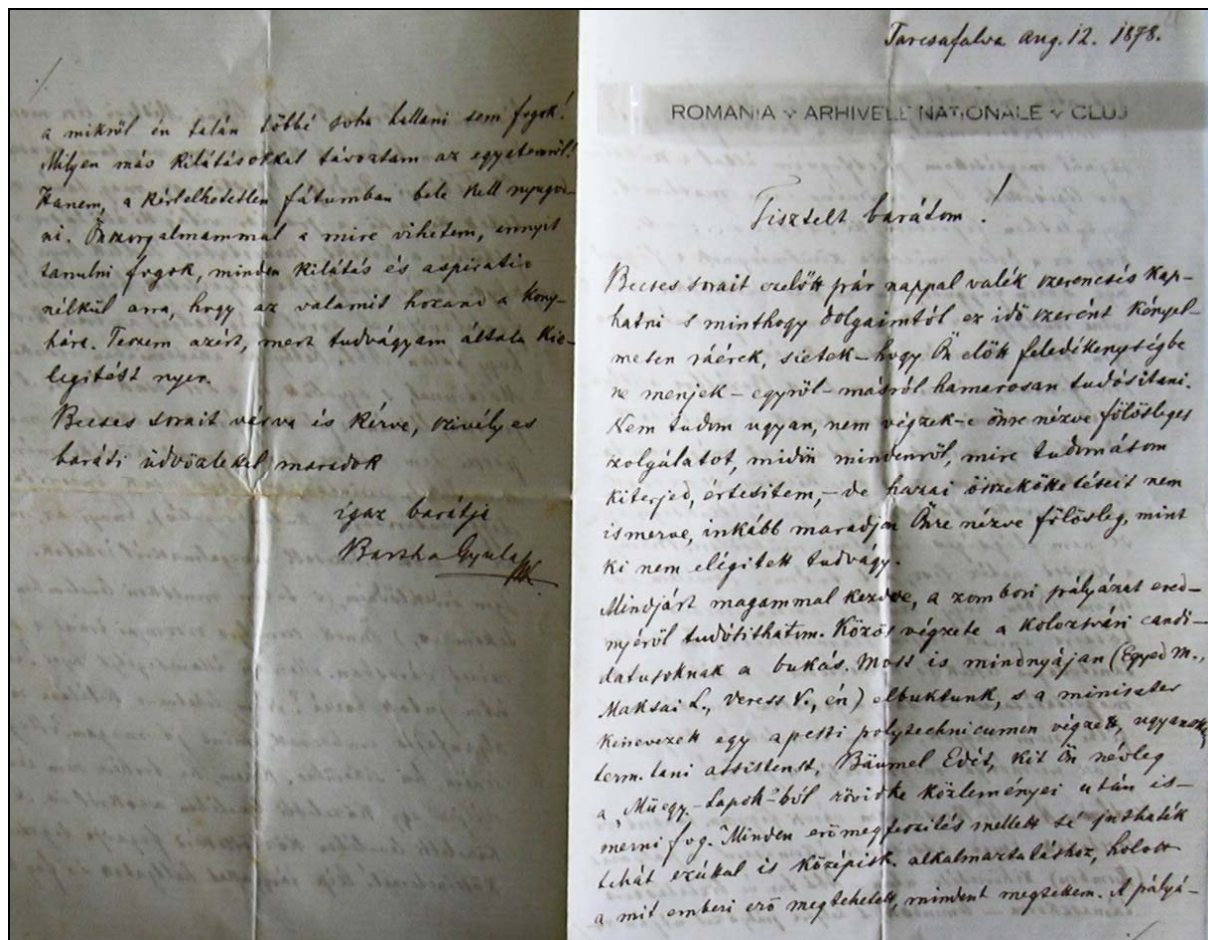 a mikről én talán többé soha hallani sem fogok!
Milyen más kilátásokkal távoztam az egyetemről!
Hanem, a kérlelhetetlen fátumban bele kell nyugod-
ni. Önszorgalmammal a mire vihetem, ennyit
tanulni fogok, minden kilátás és aspiratio
nélkül arra, hogy az valamit hozand a kony-
hára. Teszem azért, mert tudvágyam általa kie-
légitést nyer.
Becses sorait várva és kérve, szivélyes
baráti üdvözlekel maradok
igaz barátja
Bartha Gyula
Tarcsafalva aug. 12. 1878.
ROMANIA ARHIVELE NATIONALE CLUJ
Tisztelt barátom!
Becses sorait ezelőtt pár nappal valék szerencsés kap-
hatni s minthogy dolgaimtól ez idő szerént kényel-
mesen ráérek, sietek – hogy Ön előtt feledékenységbe
ne menjek – egyről-másról hamarosan tudósitani.
Nem tudom ugyan, nem végzek-e önre nézve fölösleges
szolgálatot, midőn mindenről, mire tudomásom
kiterjed, értesitem, – de hazai összeköttetéseit nem
ismerve, inkább maradjon Önre nézve fölösleg, mint
ki nem elégitett tudvágy.
Mindjárt magammal kezdve, a zombori pályázat ered-
ményéről tudósithatom. Közös végzete a kolozsvári candi-
datusoknak a bukás. Most is mindnyájan (Egyed M.,
Maksai L., Veress V., én) elbuktunk, s a miniszter
kinevezett egy a pesti polytechnicumon végzett, ugyanott
term. tani assistenst, Bäumel Edét, kit Ön névleg
a „Müegy. Lapok"-ból rövidke közleményei után is-
merni fog. Minden erőmegfeszités mellett se juthaték
tehát ezúttal is középisk. alkalmaztatáshoz, holott
a mit emberi erő megtehetett, mindent megtettem. A pályá-